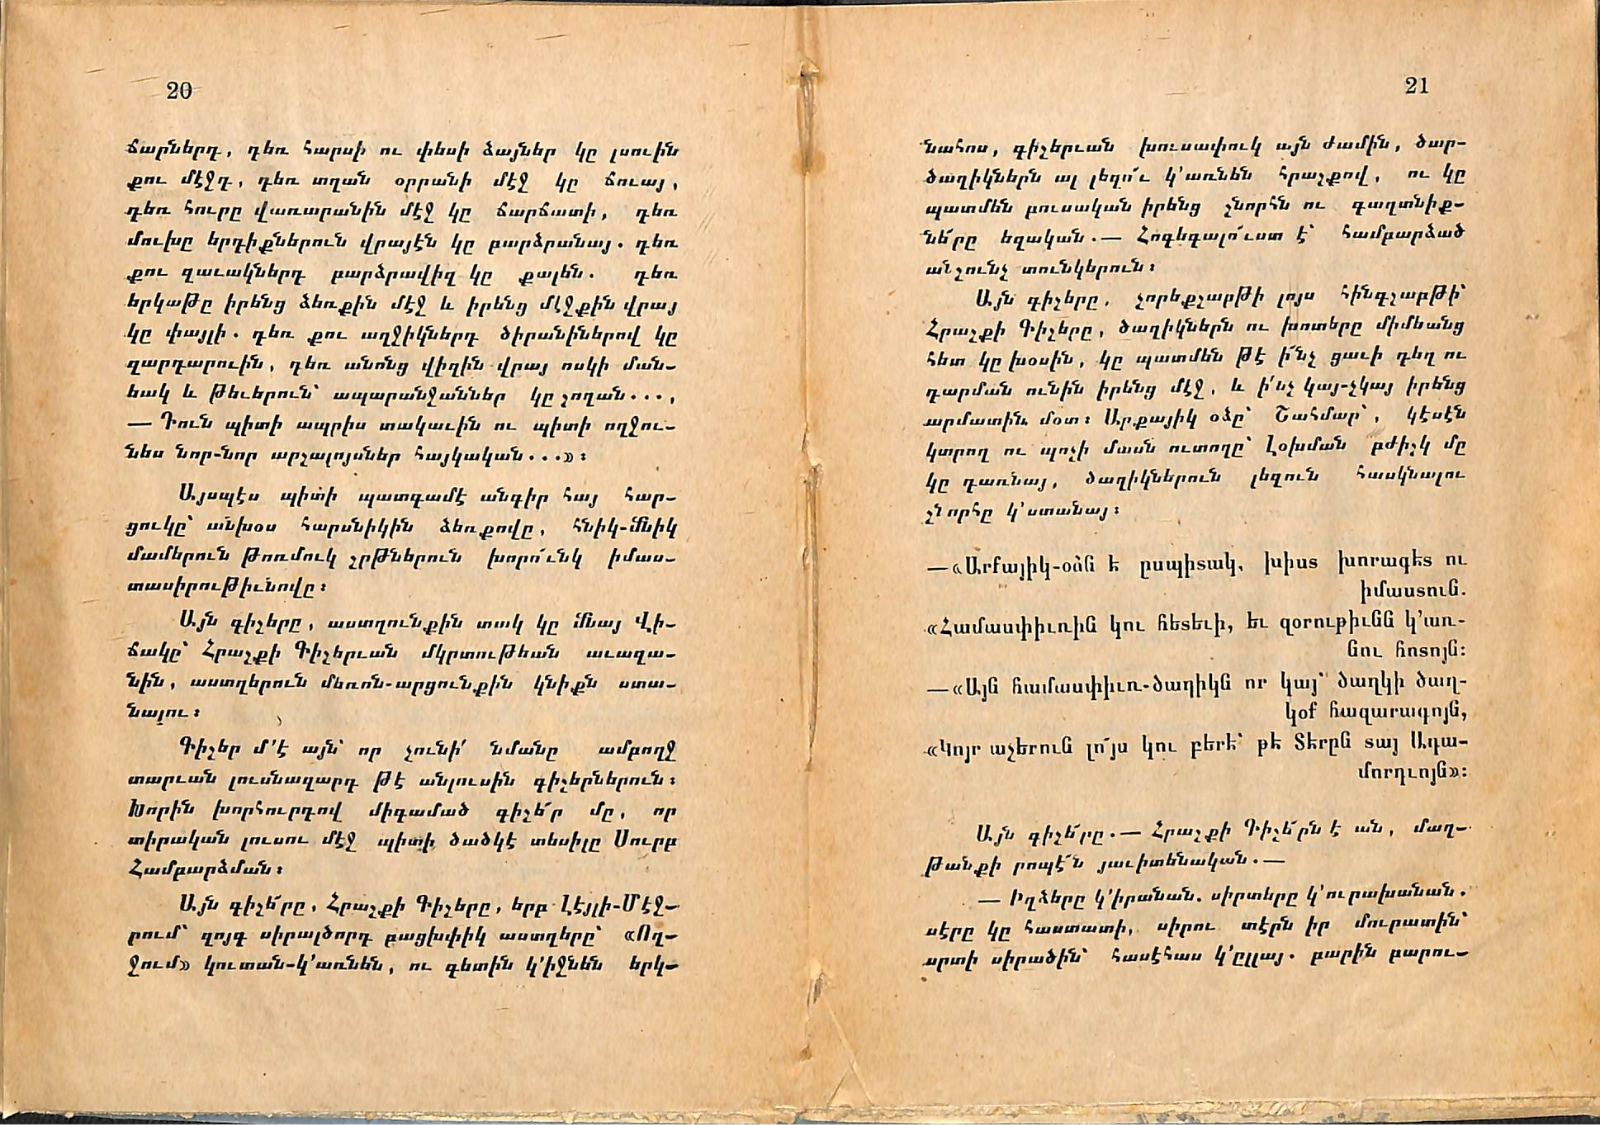 20
ճարներդ, դեռ հարսի ու փեսի ձայներ կը լսուին
քու մէջդ, դեռ տղան օրրանի մէջ կը ճուայ,
դեռ հուրը վառարանին մէջ կը ճարճատի, դեռ
մուխը երդիքներուն վրայէն կը բարձրանայ. դեռ
քու զաւակներդ բարձրավիզ կը քալեն. դեռ
երկաթը իրենց ձեռքին մէջ և իրենց մէջքին վրայ
կը փայլի. դեռ քու աղջիկներդ ծիրանիներով կը
զարդարուին, դեռ անոնց վիզին վրայ ոսկի ման-
եակ և թեւերուն՝ ապարանջաններ կը շողան...,
— Դուն պիտի ապրիս տակաւին ու պիտի ողջու-
նես նոր-նոր արշալոյսներ հայկական...»։
Այսպէս պիտի պատգամէ անգիր հայ հար-
ցուկը՝ անխօս հարսնիկին ձեռքովը, հնիկ-մնիկ
մամերուն թոռմուկ շրթներուն խորո՜ւնկ իմաս-
տասիրութիւնովը։
Այն գիշերը, աստղունքին տակ կը մնայ Վի-
ճակը՝ Հրաշքի Գիշերւան մկրտութեան աւազա-
նին, աստղերուն մեռոն-արցունքին կնիքն ստա-
նալու։
Գիշեր մ՚է այն՝ որ չունի՛ նմանը ամբողջ
տարւան լուսնազարդ թէ անլուսին գիշերներուն։
Խորին խորհուրդով միգամած գիշե՜ր մը, որ
տիրական լուսու մէջ պիտի ծածկէ տեսիլը Սուրբ
Համբարձման։
Այն գիշե՜րը, Հրաշքի Գիշերը, երբ Լէյլի-Մէջ-
րում՝ զոյգ սիրալծորդ բացխփիկ աստղերը՝ «Ող-
ջում» կուտան-կ՚առնեն, ու գետին կ՚իջնեն երկ-
21
նահոս, գիշերւան խուսափուկ այն ժամին, ծար-
ծաղիկներն ալ լեզո՜ւ կ՚առնեն հրաշքով, ու կը
պատմեն բուսական իրենց շնորհն ու գաղտնիք-
նե՜րը եզական.— Հոգեգալո՜ւստ է՝ համբարձած
անշունչ տունկերուն։
Այն գիշերը, չորեքշաբթի լոյս հինգշաբթի՝
Հրաշքի Գիշերը, ծաղիկներն ու խոտերը միմեանց
հետ կը խօսին, կը պատմեն թէ ի՜նչ ցաւի դեղ ու
դարման ունին իրենց մէջ, և ի՛նչ կայ-չկայ իրենց
արմատին մօտ։ Արքայիկ օձը՝ Շահմար՝, կէսէն
կտրող ու պոչի մասն ուտողը՝ Լօխման բժիշկ մը
կը դառնայ, ծաղիկներուն լեզուն հասկնալու
շնորհը կ՚ստանայ։
—«Արքայիկ-օձն է ըսպիտակ, խիստ խորագէտ ու
իմաստուն.
«Համասփիւռին կու հետեւի, եւ զօրութիւնն կ՚առ-
նու հոտոյն։
—«Այն համասփիւռ-ծաղիկն որ կայ՝ ծաղկի ծաղ-
կօք հազարագոյն,
«Կոյր աչերուն լո՜յս կու բերէ՝ թէ Տերըն տայ Ադա-
մորդւոյն»։
Այն գիշե՜րը.— Հրաշքի Գիշե՜րն է ան, մաղ-
թանքի րոպէ՜ն յաւիտենական.—
— Իղձերը կ՚իրանան. սիրտերը կ՚ուրախանան.
սէրը կը հաստատի, սիրու տէրն իր մուրատին՝
սրտի սիրածին՝ հասէհաս կ՚ըլլայ. բարին բարու-